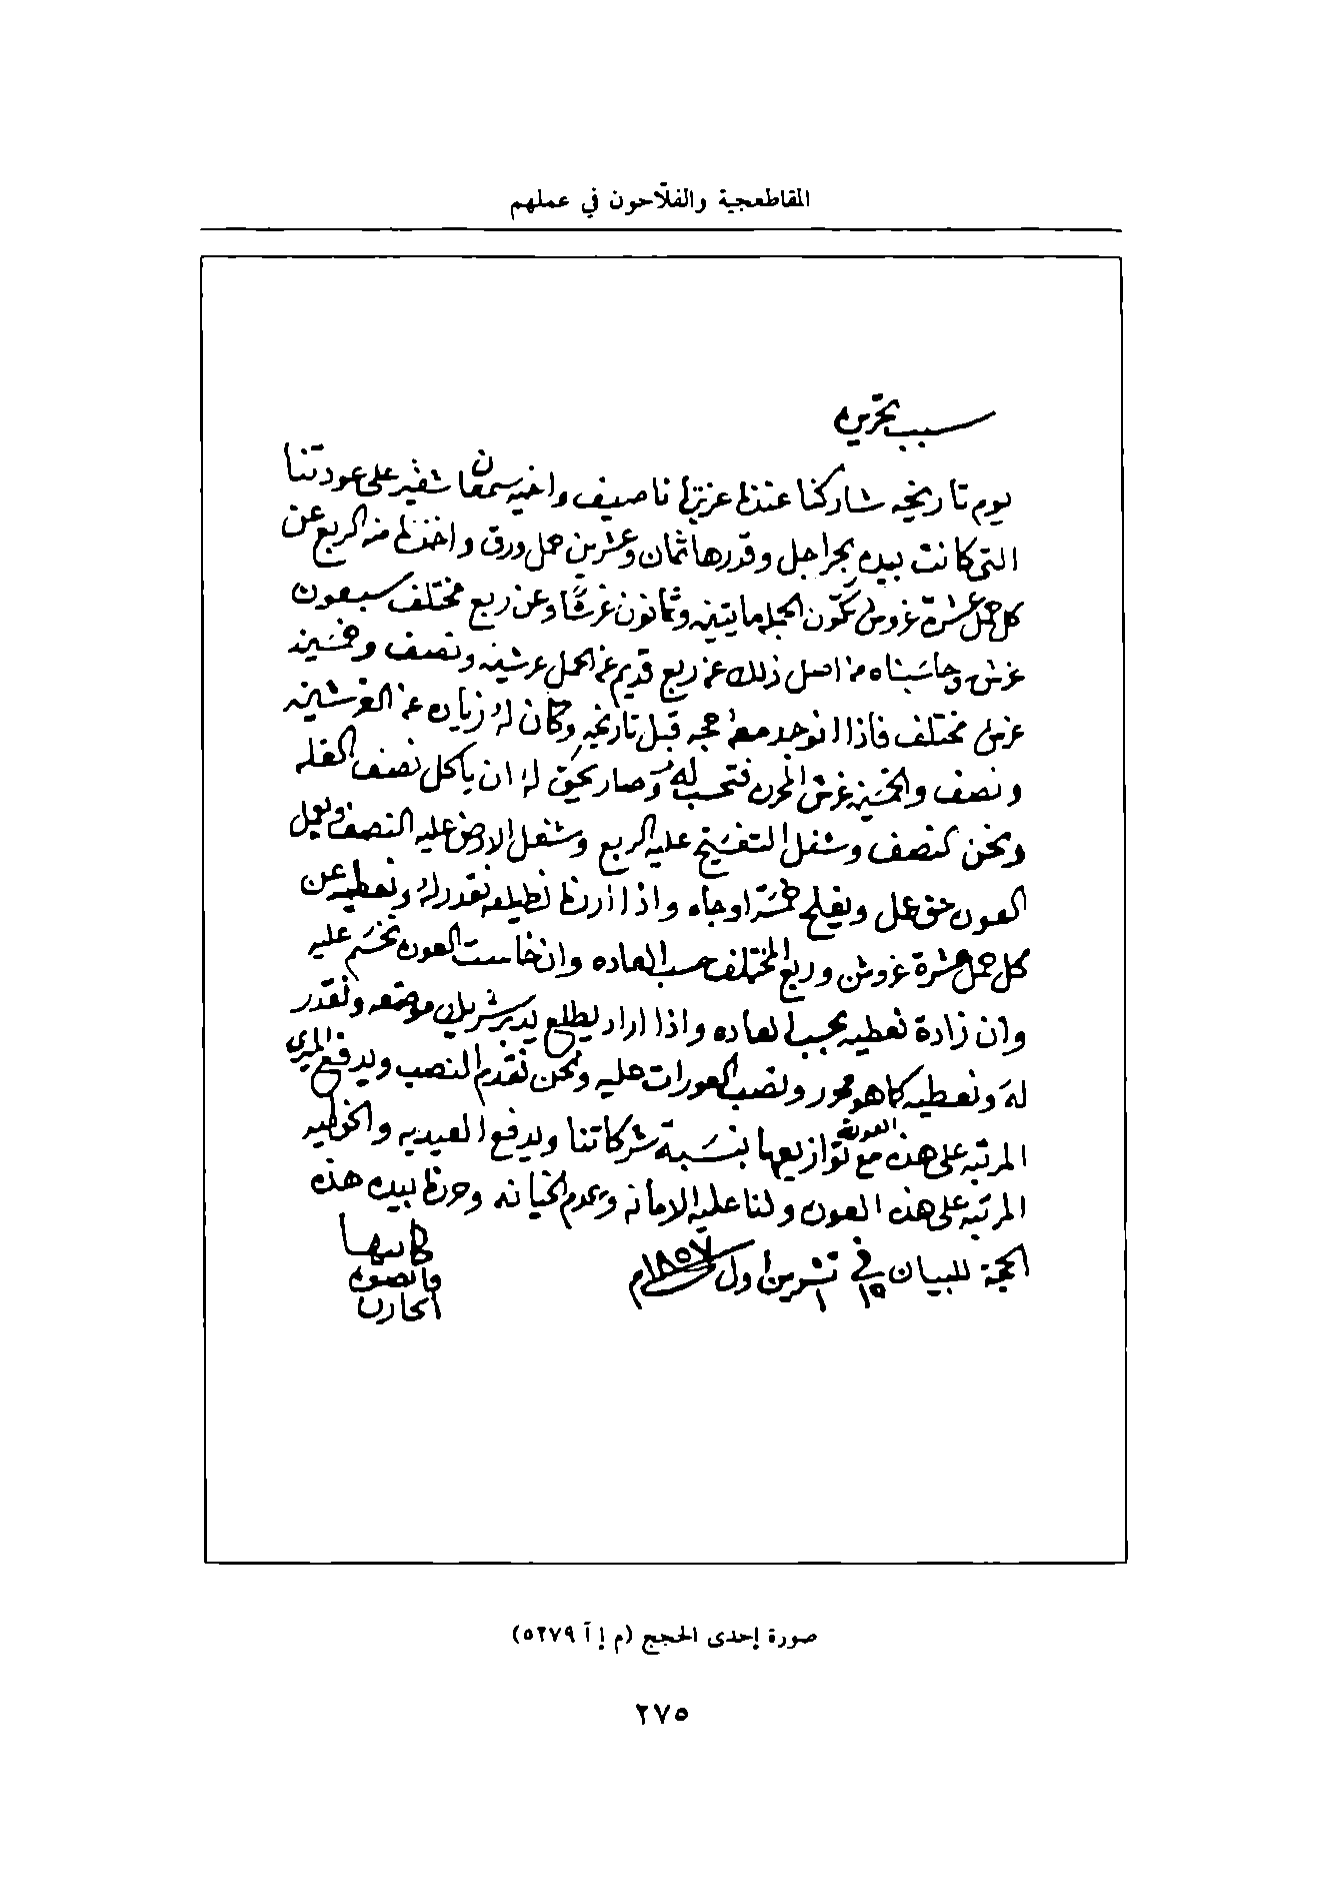 المقاطعجية والفلّاحون في عملهم
سبب تحريره
يوم تاريخه شاركنا عندنا عزيزنا ناصيف واخيه سمعان شقير على عودتنا
التي كانت بيده بجراجل وقدرها ثمان وعشرين حمل ورق واخذنا منه الربع عن
كل حمل عشرة غروش تكون الجمله مايتين وثمانون غرشًا وعن ربع مختلف سبعون
غرش وحاسبناه من اصل ذلك عن ربع قديم عن الحمل غرشين ونصف وخمسين
غرش مختلف فاذا انوجد معه حجه قبل تاريخه وكان له زياده عن الغرشين
ونصف والخمسين غرش المحرره فتحسب له وصار يحق له ان ياكل نصف الغله
ونحن النصف وشغل التفسيح عليه الربع وشغل الارض عليه النصف ويعمل
العوده حق عمل ويفلح خمسة اوجاه واذا اردنا نطيلعه نقدر له ونعطيه عن
كل حمل عشرة غروش وربع المختلف حسب العاده وان خاست العوده نخسم عليه
وان زادة نعطيه بحسب العاده واذا اراد يطلع يدبر شريك موضعه ونقدر
له ونعطيه كما هو محرر ونصب العورات عليه ونحن نقدم النصب ويدفع الميري
المرتبه على هذه العوده مع توازيعها بنسبة شركاتنا ويدفع العيديه والخوطيه
المرتبه على هذه العوده ولنا عليه الامانه وعدم الخيانه وحررنا بيده هذه
الحجة للبيان في ١٥ تشرين اول ١٨٥٧م
كاتبها
وانصوه
الخازن
صورة إحدى الحجج (م إ آ ٥٢٧٩)
٢٧٥